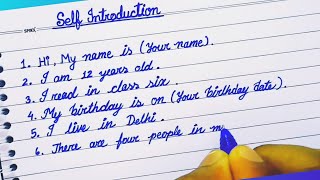 Self Introduction
1. Hi, My name is (Your name).
2. I am 12 years old.
3. I read in class six.
4. My birthday is on (Your birthday date).
5. I live in Delhi.
6. There are four people in m